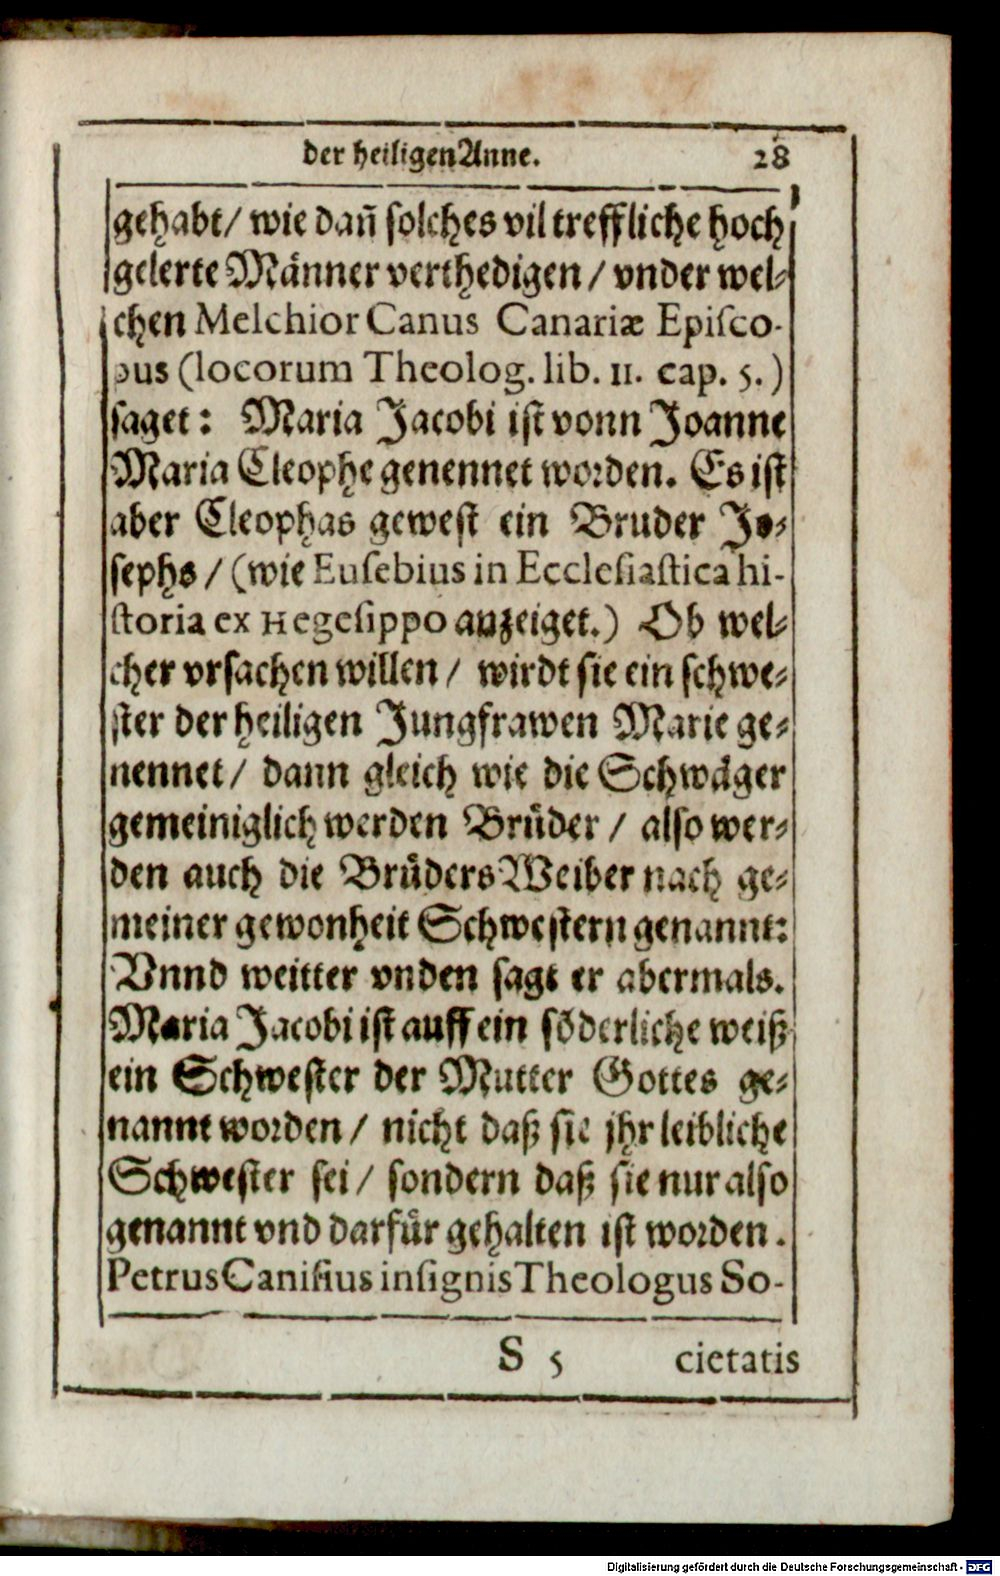 der heiligen Anne. 28
gehabt/ wie dañ solches vil treffliche hoch
gelerte Männer verthedigen / vnder wel-
chen Melchior Canus Canariæ Episco-
pus (locorum Theolog. lib. 11. cap. 5.)
saget: Maria Jacobi ist vonn Joanne
Maria Cleophe genennet worden. Es ist
aber Cleophas gewest ein Bruder Jo-
sephs / (wie Eusebius in Ecclesiastica hi-
storia ex Hegesippo anzeiget.) Ob wel-
cher vrsachen willen / wirdt sie ein schwe-
ster der heiligen Jungfrawen Marie ge-
nennet / dann gleich wie die Schwäger
gemeiniglich werden Brüder / also wer-
den auch die Brüders Weiber nach ge-
meiner gewonheit Schwestern genannt:
Vnnd weitter vnden sagt er abermals.
Maria Jacobi ist auff ein sõderliche weiß
ein Schwester der Mutter Gottes ge-
nannt worden / nicht daß sie jhr leibliche
Schwester sei / sondern daß sie nur also
genannt vnd darfür gehalten ist worden.
Petrus Canisius insignis Theologus So-
S 5 cietatis
Digitalisierung gefördert durch die Deutsche Forschungsgemeinschaft - DFG